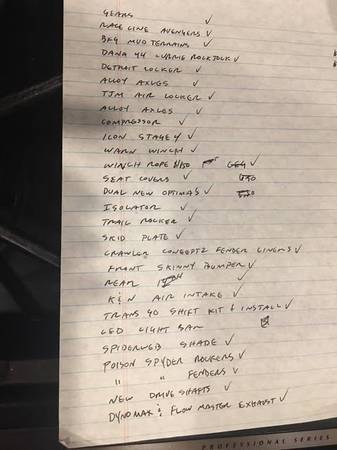 GEARS ✓
RACE LINE AVENGERS ✓
BFG MUD TERRAINS ✓
DANA 44 CURRIE ROCKJOCK ✓
DETROIT LOCKER ✓
ALLOY AXLES ✓
TJM AIR LOCKER ✓
ALLOY AXLES ✓
COMPRESSOR ✓
ICON STAGE 4 ✓
WARN WINCH ✓
WINCH ROPE ✓
SEAT COVERS ✓
DUAL NEW OPTIMAS ✓
ISOLATOR ✓
TRAIL ROCKER ✓
SKID PLATE ✓
CRAWLER CONCEPTZ FENDER LINERS ✓
FRONT SKINNY BUMPER ✓
REAR ✓
K&N AIR INTAKE ✓
TRANS GO SHIFT KIT & INSTALL ✓
LED LIGHT BAR
SPIDERWEB SHADE ✓
POISON SPYDER ROCKERS ✓
" " FENDERS ✓
NEW DRIVE SHAFTS ✓
DYNOMAX & FLOW MASTER EXHAUST ✓
PROFESSIONAL SERIES